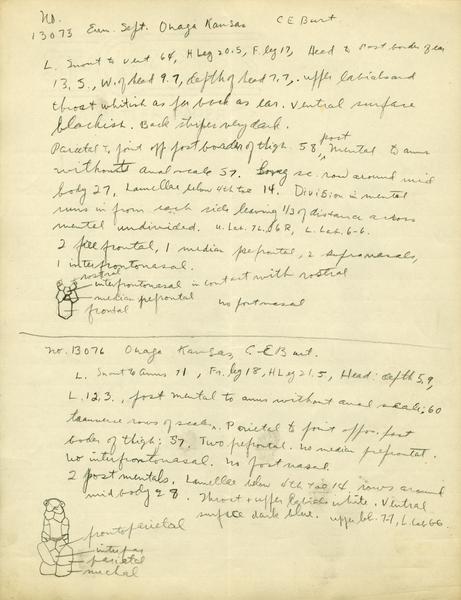 No.
13073 Eum. Sept. Onaga Kansas C E Burt
L. Snout to vent 64, H Leg 20.5, F. leg 17, Head to post border of ear
13.5, W. of head 9.7, depth of head 7.7, upper labials and
throat whitish as far back as ear. Ventral surface
blackish. Back stripes very dark.
Parietal to point opp post border of thigh 58, post mental to anus
without anal scales 57. sc. row around mid
body 27, Lamellae below 4th toe 14. Division in mental
runs in from each side leaving 1/3 of distance across
mental undivided. u. Lab. 7L. 6 R, L. Lab. 6-6.
2 prefrontal, 1 median prefrontal, 2 supranasals,
1 interfrontonasal.
rostral
interfrontonasal in contact with rostral
median prefrontal no postnasal
frontal
No. 13076 Onaga Kansas, C. E Burt.
L. Snout to anus 71, Fr. leg 18, H Leg 21.5, Head: depth 5.9,
L. 12.3, post mental to anus without anal scales; 60
transverse rows of scales. Parietal to point oppo. post
border of thigh; 57. Two prefrontal. No median prefrontal.
No interfrontonasal. No post nasal.
2 post mentals. Lamellae below 4th toe 14 rows around
mid body 28. Throat & upper labials white. Ventral
surface dark blue. upper lbl. 7-7, L. Lab 6-6.
frontoparietal
interpar
parietal
nuchal